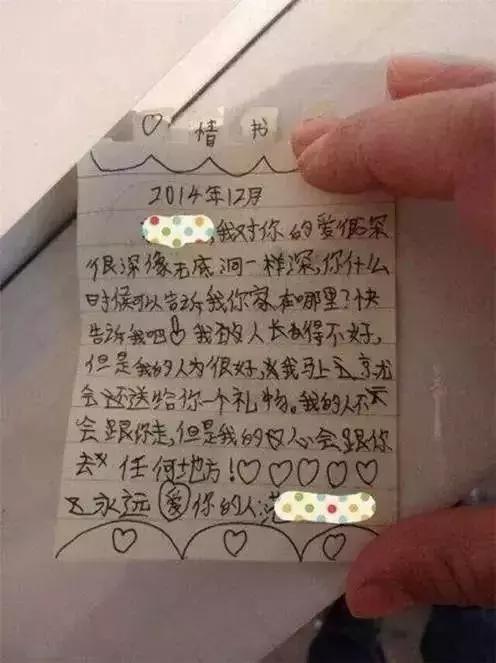 ♡ 情书
2014年12月
,我对你的爱很深
很深像无底洞一样深,你什么
时候可以告诉我你家在哪里?快
告诉我吧! 我的人长得不好,
但是我的人为很好,我马上
会还送给你一个礼物。我的人不
会跟你走,但是我的心会跟你
去任何地方!♡♡♡♡♡
永远爱你的人:范